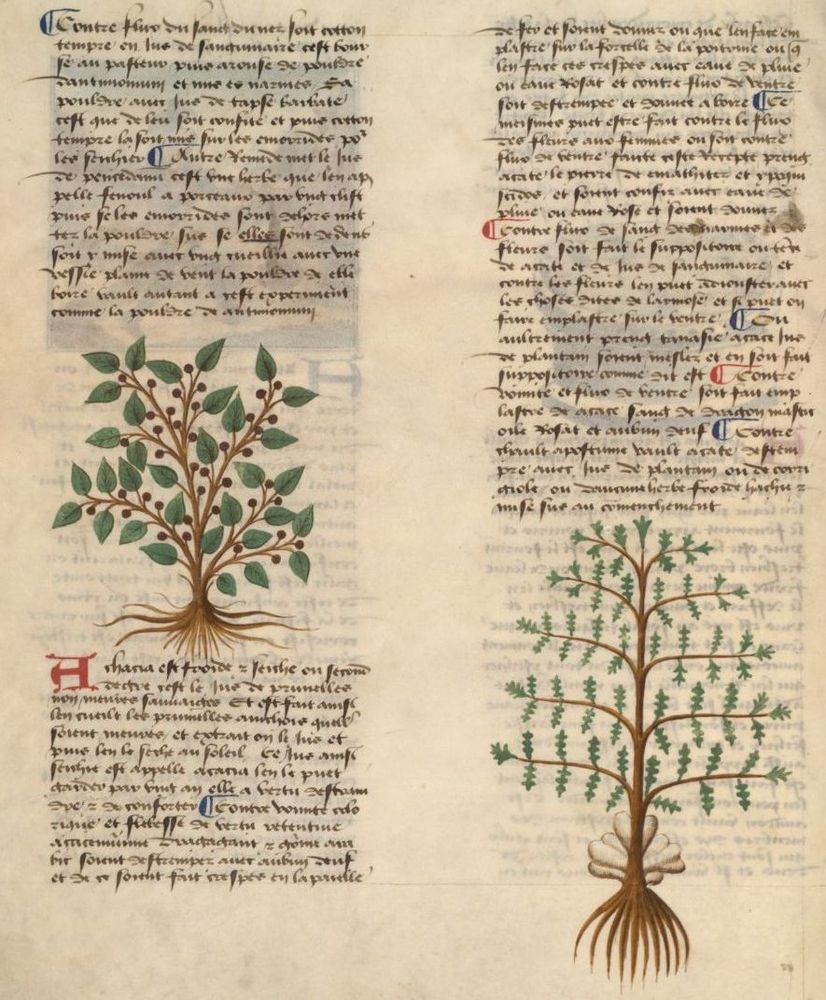 Contre fluo du sanc du nez soit cotton
tempre en Jus de sanguinaire cest bour
se au pasteur puis arouse de pouldre
dantimonium et mis es narines La
pouldre auec Jus de tapse barbate
cest que de leu soit confite et puis cotton
tempre la soit mis sur les emorrides po
les seichier Autre Remede met le Jus
de peucedani cest vne herbe que len ap
pelle fenoul a porceaux par vng clist
puis se les emorrides sont dehors met
tez la pouldre sus se elles sont dedens
soit y mise auec vng cueillir auec vne
vessie plaine de vent la pouldre de elle
boire vault autant a cest experiment
comme la pouldre de antimonium
Achacia est froide z seiche ou second
degre cest le Jus de prunelles
non meures sauuaiges Et est fait ainsi
len cueilt les prunelles ainchois quelz
soient meures et extrait on le Jus et
puis len le seche au soleil Ce Jus ainsi
seichie est appelle acacia len le puet
garder par vng an elle a vertu destrain
dre z de conforter Contre vomite colo
rique et flebesse de vertu retentiue
dragagant z gome ara
bic soient destrempez auec aubun deuf
et de ce soient fait crespes en la paielle
de fer et soient donnez ou que len face em
plastre sur la forcelle de la poitrine ou q
len face ces crespes auec eaue de pluie
ou eaue Rosat et contre fluo de ventre
soit destrempee et donnee a boire Ce
meismes puet estre fait contre le fluo
des fleurs aux femmes ou soit contre
fluo de ventre faitte ceste Recepte preng
acate le pierre de emathitez et yppqui
stidos et soient confis auec eaue de
pluie ou eaue Rose et soient donnez
Contre fluo de sang des narines et des
fleurs soit fait le suppositoire ou tente
de acate et de Jus de sanguinaire et
contre les fleurs len puet adiouster auec
les choses dites de larmose et si puet on
faire emplastre sur le ventre Ou
aultrement preng tanasie acace Jus
de plantain soient meslez et en soit fait
suppositoire comme dit est Contre
vomite et fluo de ventre soit fait emp
lastre de acace sang de dragon mastic
oile Rosat et aubun deuf Contre
chault apostume vault acate destem
pre auec Jus de plantain ou de corri
giole ou daucune herbe froide hachie z
mise sus au commenchement